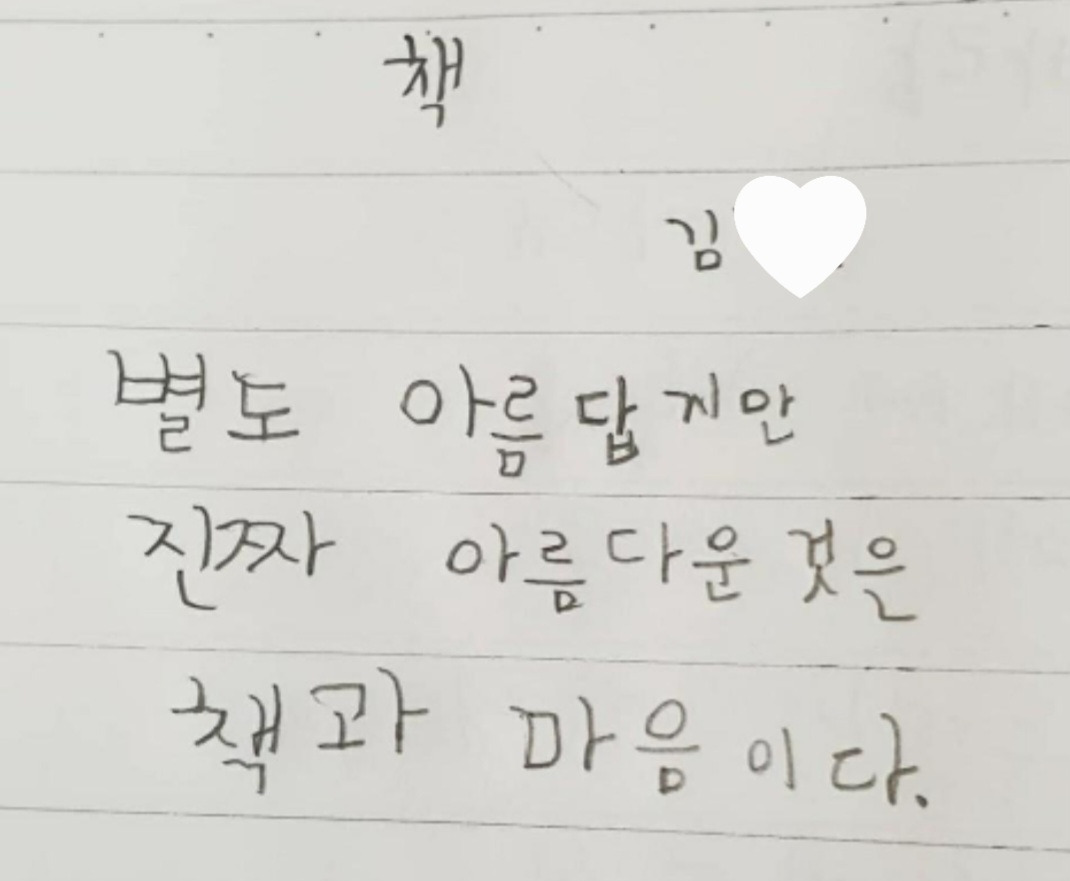 책
김
별도 아름답지만
진짜 아름다운 것은
책과 마음이다.